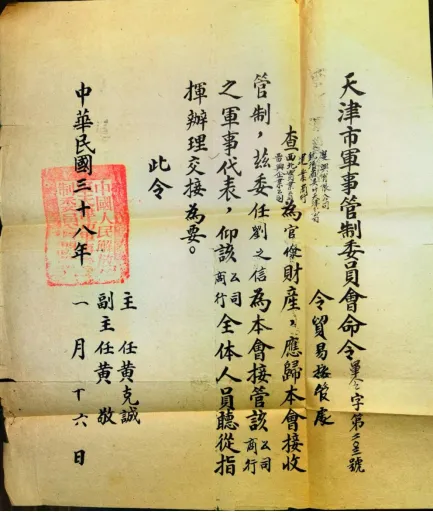 天津市軍事管制委員會命令 字第 號
令貿易接管處
查西北實業公司 為官僚財產，應歸本會接收
管制，茲委任劉之信為本會接管該公司商行
之軍事代表，仰該公司商行全体人員聽從指
揮辦理交接為要。
此令
主任黃克誠
副主任黃敬
中華民國三十八年一月十六日